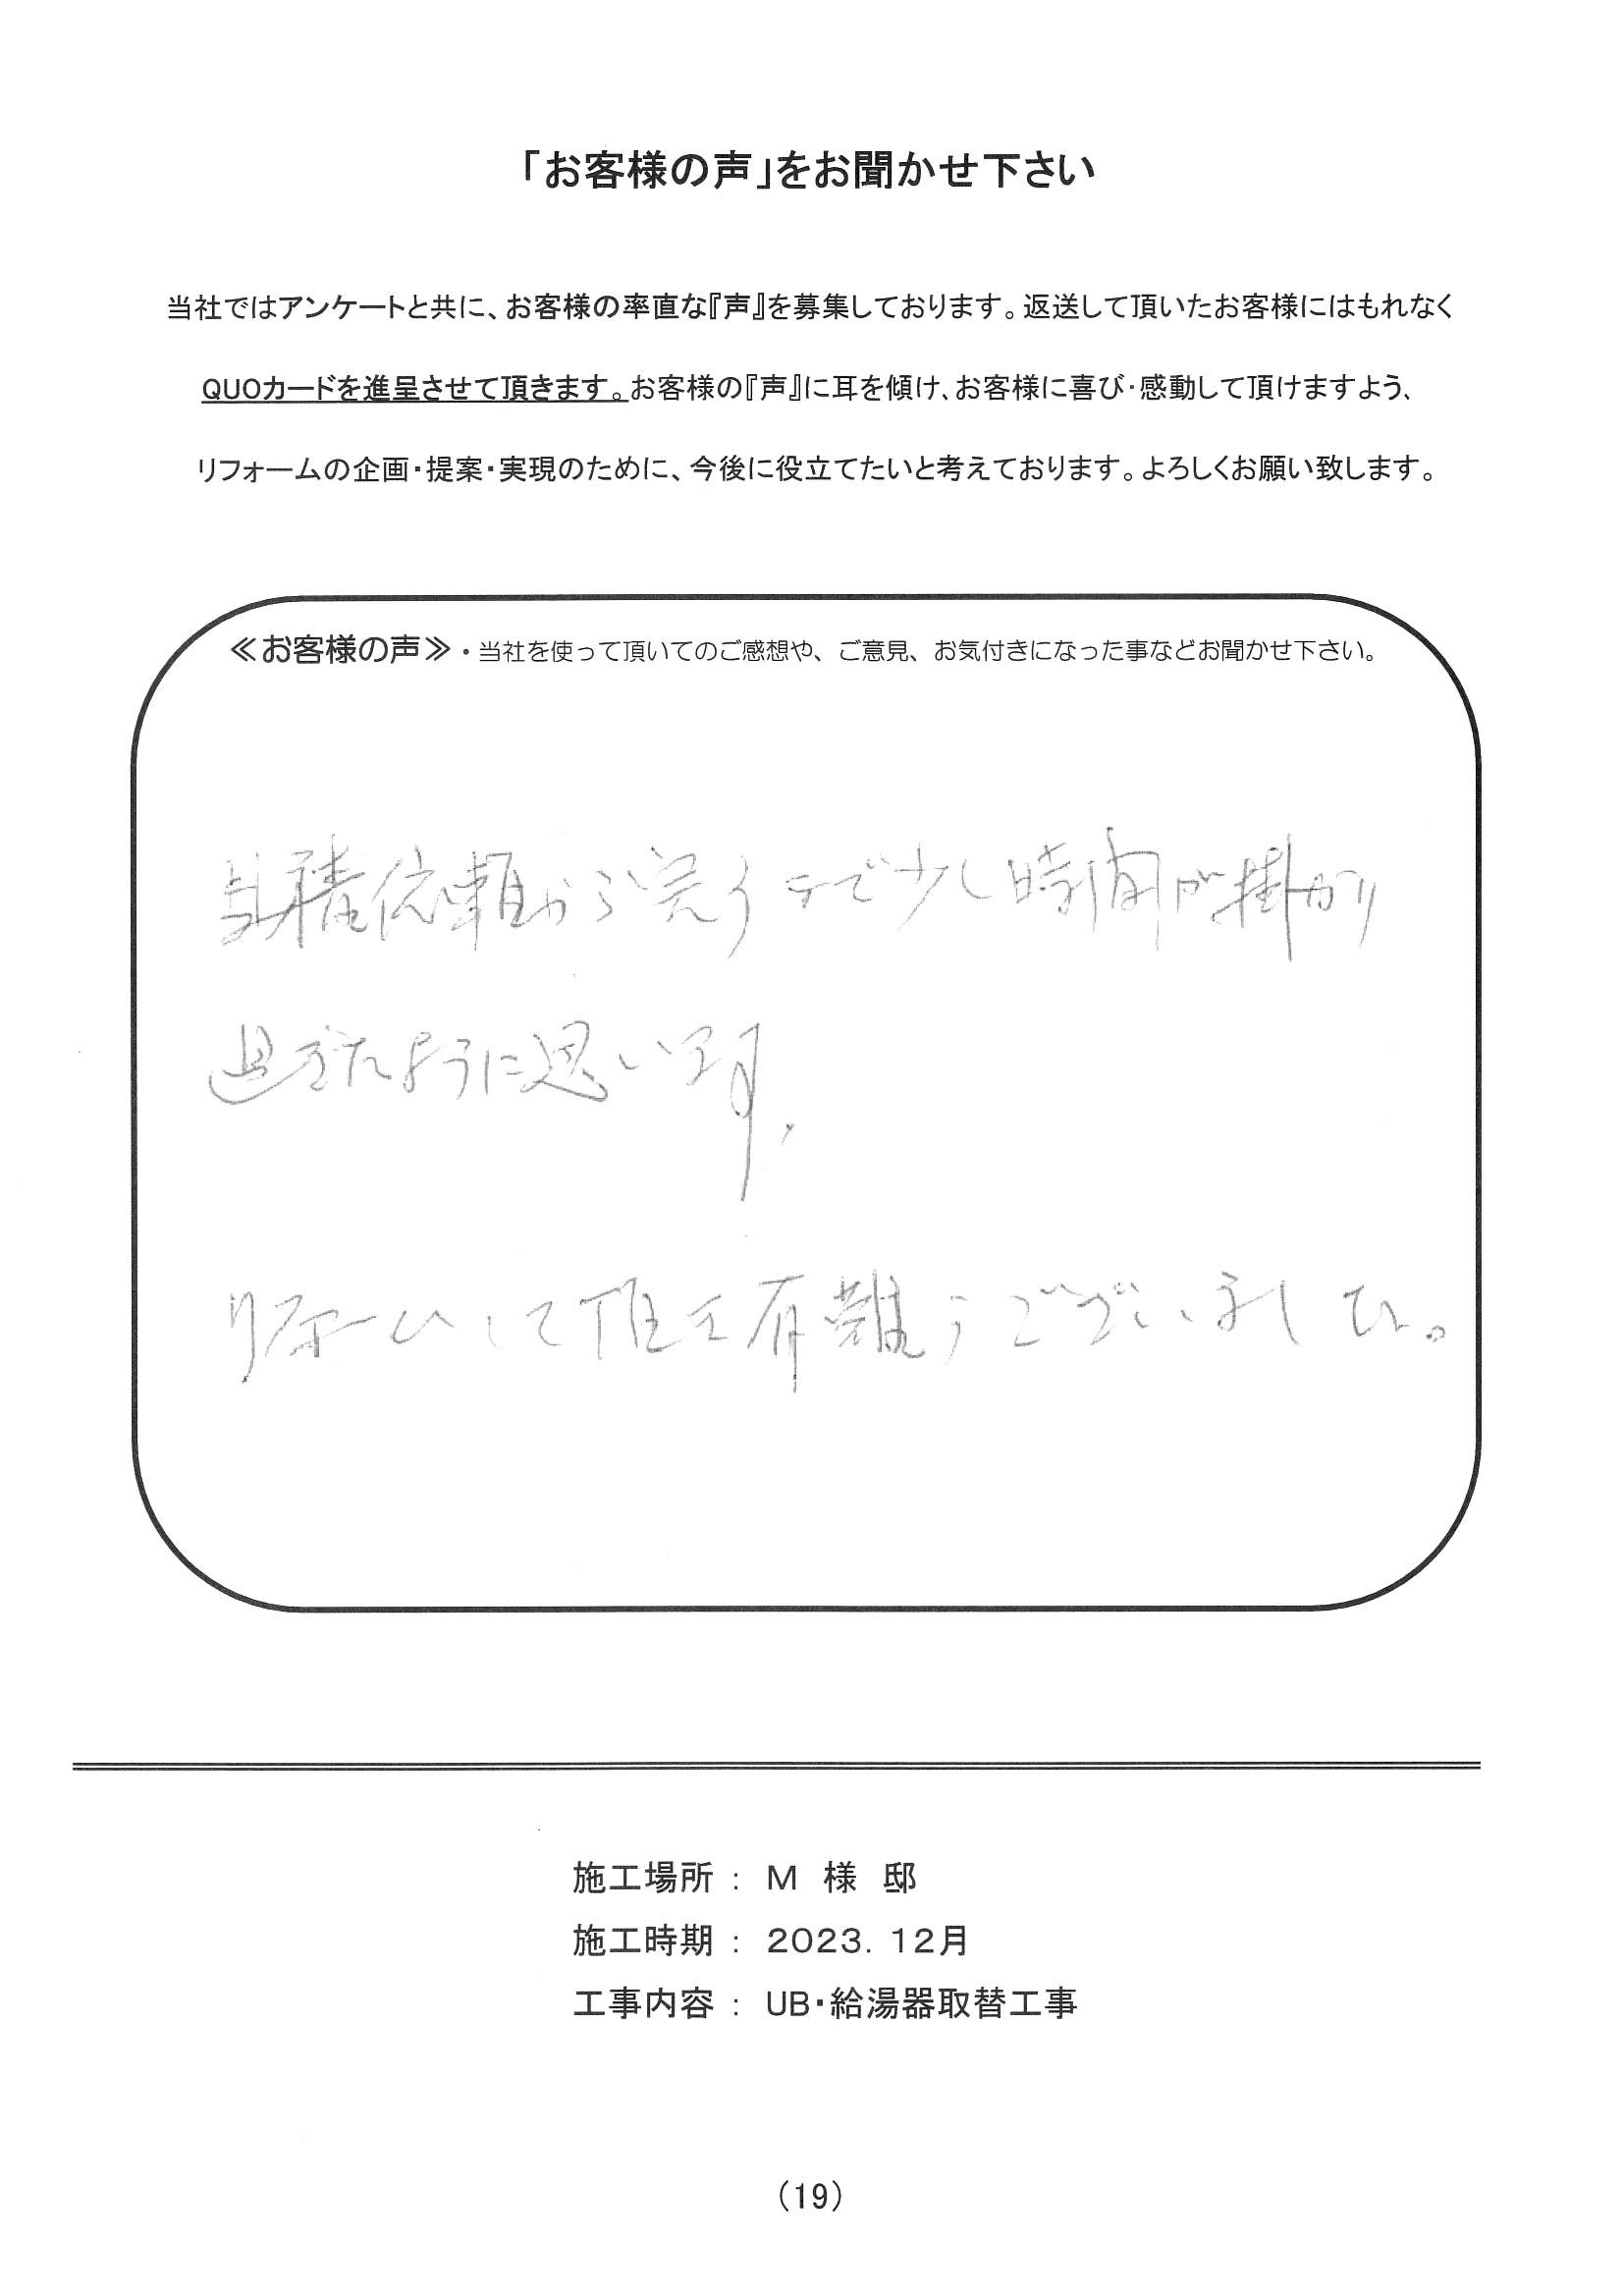 「お客様の声」をお聞かせ下さい
当社ではアンケートと共に、お客様の率直な『声』を募集しております。返送して頂いたお客様にはもれなく
QUOカードを進呈させて頂きます。お客様の『声』に耳を傾け、お客様に喜び・感動して頂けますよう、
リフォームの企画・提案・実現のために、今後に役立てたいと考えております。よろしくお願い致します。
≪お客様の声≫・当社を使って頂いてのご感想や、ご意見、お気付きになった事などお聞かせ下さい。
依頼から完了まで少し時間が掛かり
過ぎたように思います。
リフォームして頂き有難うございました。
施工場所 : M 様 邸
施工時期 : 2023. 12月
工事内容 : UB・給湯器取替工事
(19)